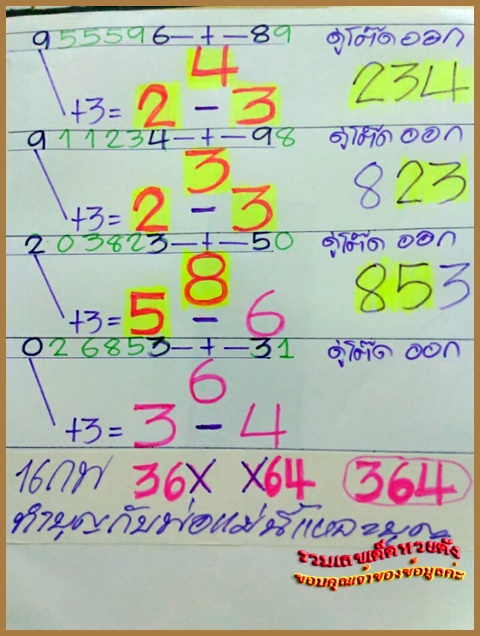 955596-+-89 คู่โต๊ด ออก
4 234
+3= 2 - 3
911234-+-98 คู่โต๊ด ออก
3 823
+3= 2 - 3
203823-+-50 คู่โต๊ด ออก
8 853
+3= 5 - 6
026853-+-31 คู่โต๊ด ออก
6
+3= 3 - 4
16 กพ 36X X64 364
ทำบุญกับพ่อแม่นี้แหละบุญ
รวมเลขเด็ดหวยดัง
ขอบคุณเจ้าของข้อมูลค่ะ